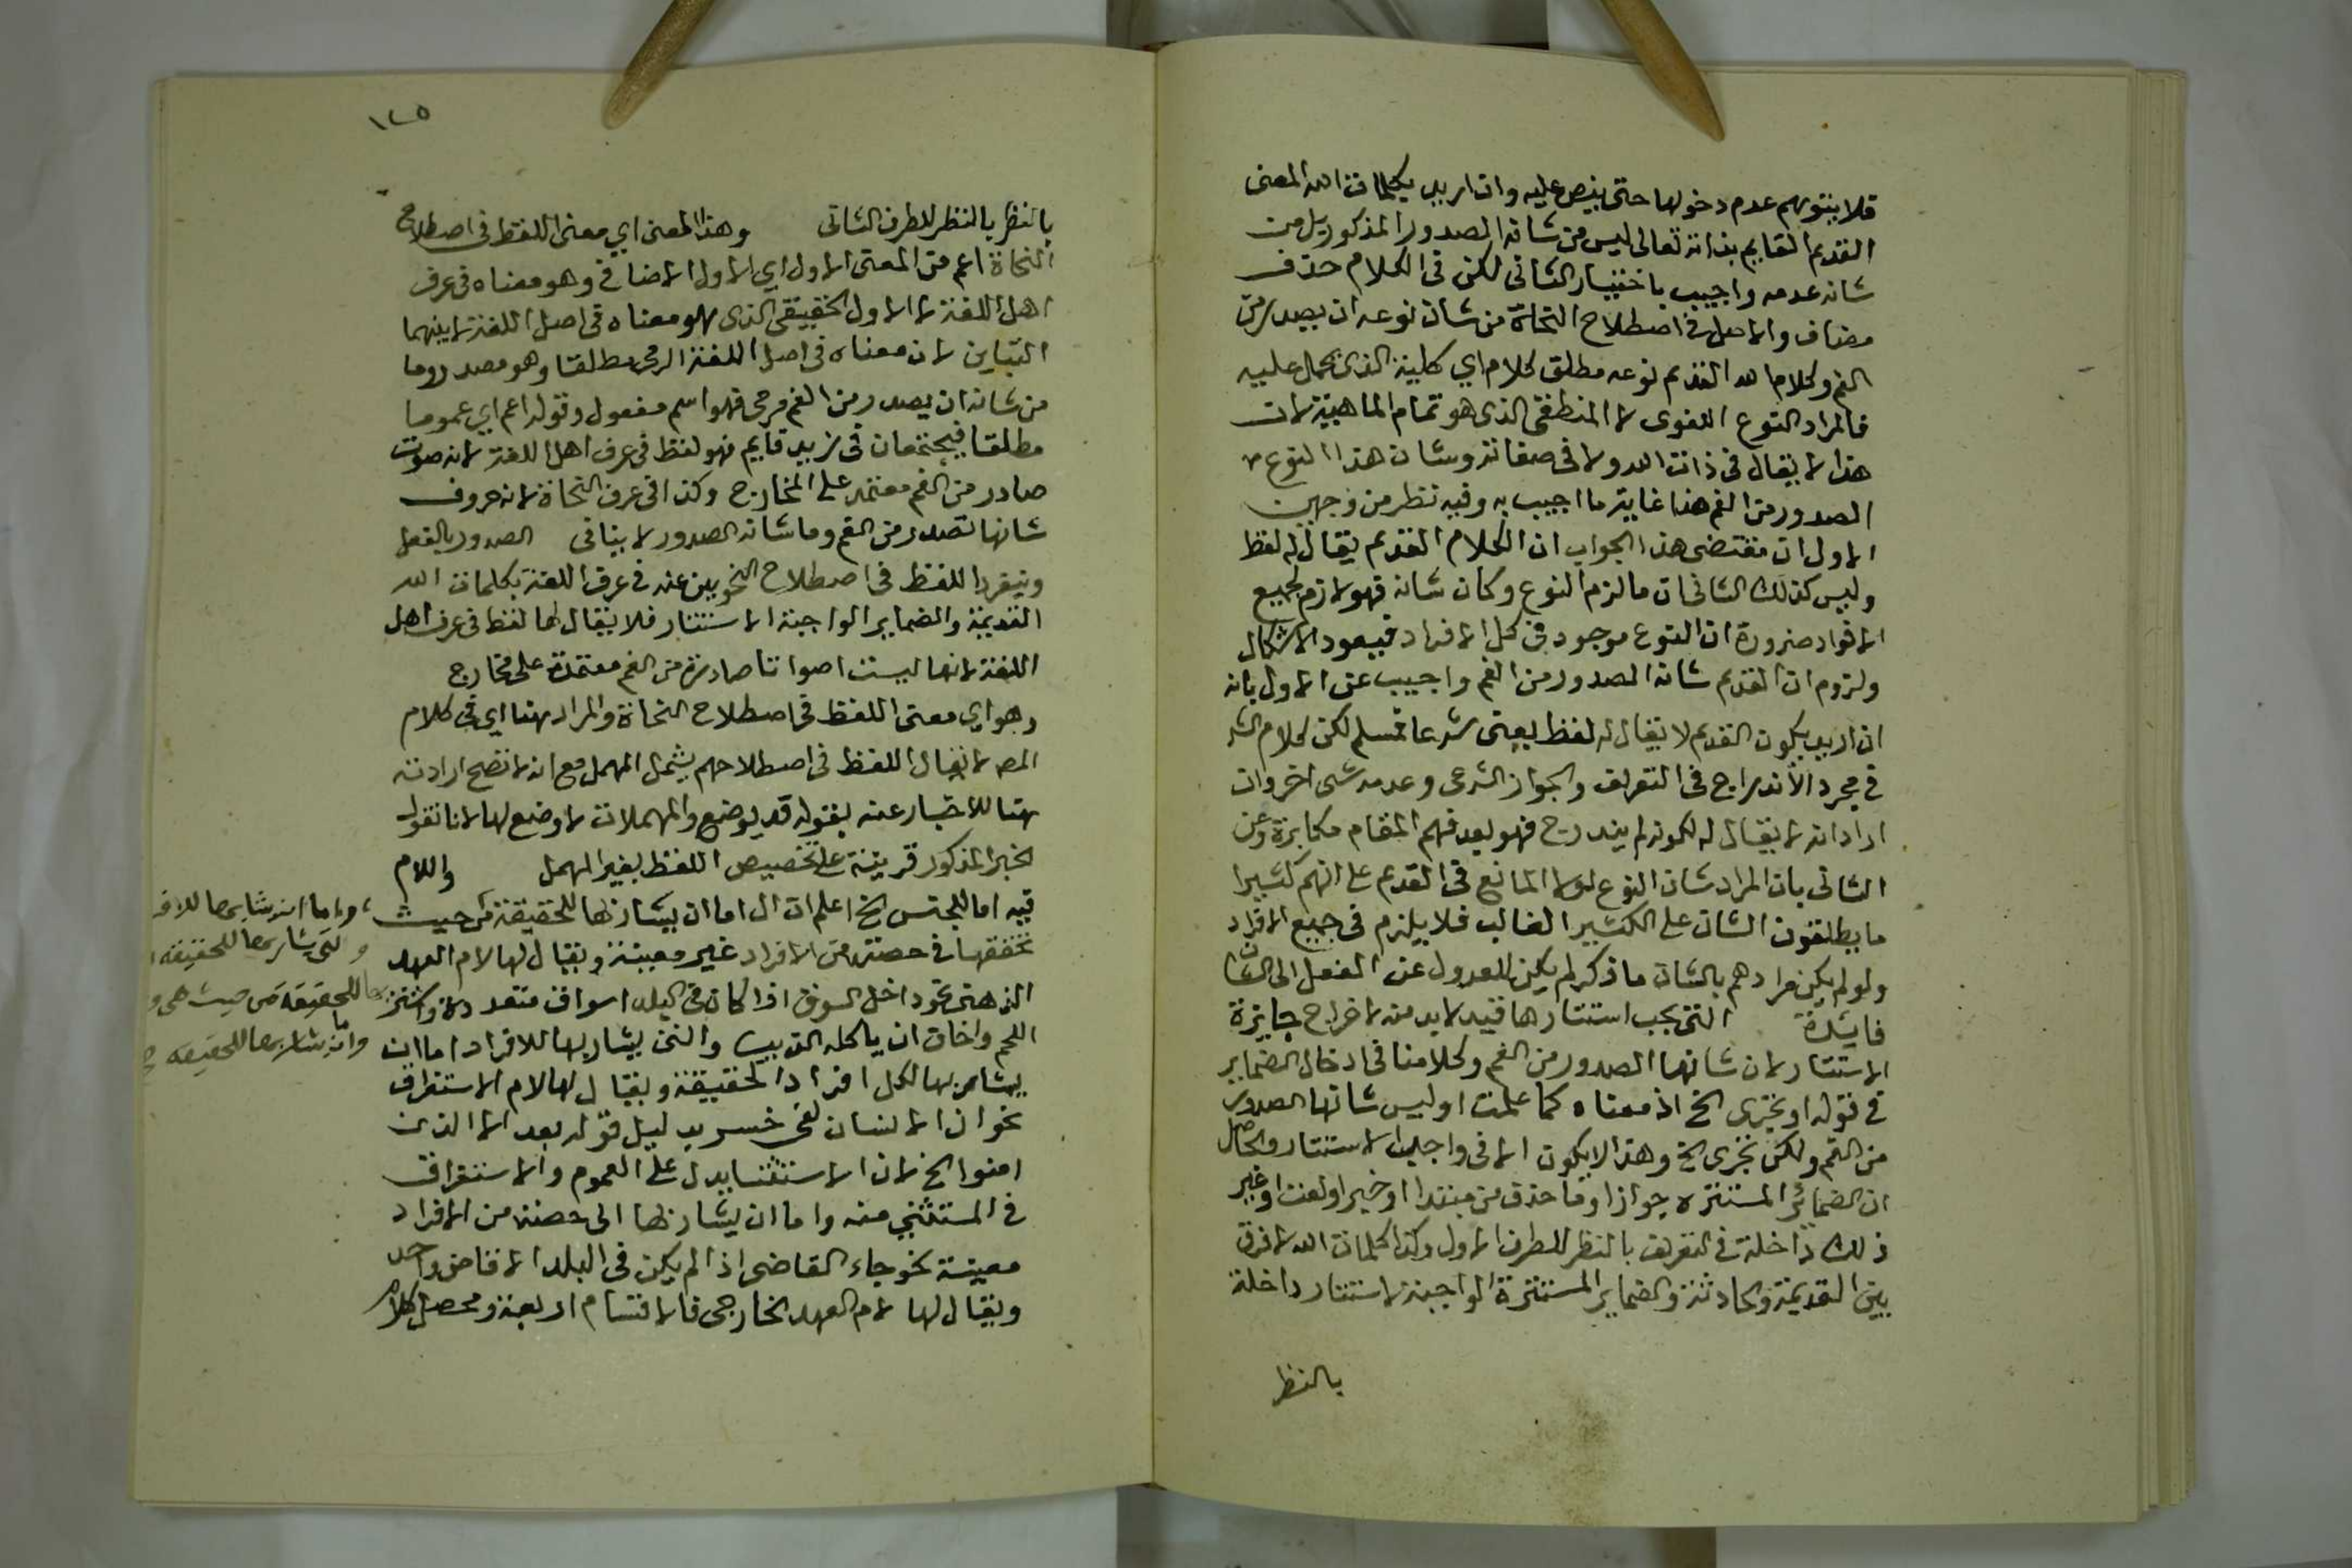 فلا يتوهم عدم دخولها حتى ينص عليه وان اريد بكلمات الله المعنى
القديم القايم بذاته تعالى ليس من شانه الصدور المذكور بل من
شانه عدمه واجيب باختيار الثانى لكن فى الكلام حذف
مضاف والاصل فى اصطلاح النحاة من شان نوعه ان يصدر من
الفم وكلام الله القديم نوعه مطلق كلام اي كليته الذى يحمل عليه
فالمراد النوع اللغوى لا المنطقى الذى هو تمام الماهية لان
هذا لا يقال فى ذات الله ولا فى صفاته وشان هذا النوع
الصدور من الفم هذا غاية ما اجيب به وفيه نظر من وجهين
الاول ان مقتضى هذا الجواب ان الكلام القديم يقال له لفظ
وليس كذلك الثانى ان ما لزم النوع وكان شانه فهو لازم لجميع
الافراد ضرورة ان النوع موجود فى كل الافراد فيعود الاشكال
ولزوم ان القديم شانه الصدور من الفم واجيب عن الاول بانه
ان اريد بكون القديم لا يقال له لفظ يعنى شرعا فمسلم لكن كلام الش
فى مجرد الاندراج فى التعريف والجواز الشرعى وعدمه شى اخر وان
اراد انه لا يقال له لكونه لم يندرج فهو بعد فهم المقام مكابرة وعن
الثانى بان المراد شان النوع لولا المانع فى القديم على انهم كثيرا
ما يطلقون الشان على الكثير الغالب فلا يلزم فى جميع الافراد
ولو لم يكن مرادهم بالشان ما ذكر لم يكن للعدول عن الفعل الى الشان
فايدة التى يجب استتارها قيد لا بد منه لاخراج جايزة
الاستتار لان شانها الصدور من الفم وكلامنا فى ادخال الضماير
فى قوله او تجرى الخ اذ معناه كما علمت او ليس شانها الصدور
من الفم ولكن تجرى الخ وهذا لا يكون الا فى واجبة الاستتار والحاصل
ان الضمائر المستترة جوازا وما حذف من مبتدا او خبر او نعت او غير
ذلك داخلة فى التعريف بالنظر للطرف الاول وكذا كلمات الله لا فرق
بين القديمة والحادثة والضماير المستترة الواجبة الاستتار داخلة
بالنظر
١٢٥
بالنظر بالنظر للطرف الثانى وهذا المعنى اي معنى اللفظ فى اصطلاح
النحاة اعم من المعنى الاول اي الاول الاضافى وهو معناه فى عرف
اهل اللغة لا الاول الحقيقى الذى هو معناه فى اصل اللغة لا بينهما
التباين لان معناه فى اصل اللغة الرمى مطلقا وهو مصدر وما
من شانه ان يصدر من الفم مرمى فهو اسم مفعول وقوله اعم اي عموما
مطلقا فيجتمعان فى زيد قايم فهو لفظ فى عرف اهل اللغة لانه صوت
صادر من الفم معتمد على المخارج وكذا فى عرف النحاة لانه حروف
شانها تصدر من الفم وما شانه الصدور لا ينافى الصدور بالفعل
وينفرد اللفظ فى اصطلاح النحويين عنه فى عرف اللغة بكلمات الله
القديمة والضماير الواجبة الاستتار فلا يقال لها لفظ فى عرف اهل
اللغة لانها ليست اصواتا صادرة من الفم معتمدة على مخارج
وهو اي معنى اللفظ فى اصطلاح النحاة والمراد هنا اي فى كلام
المص لا يقال اللفظ فى اصطلاحهم يشمل المهمل مع انه لا تصح ارادته
هنا للاخبار عنه بقوله قد يوضع والمهملات لا وضع لها لانا نقول
الخبر المذكور قرينة على تخصيص اللفظ بغير المهمل واللام
فيه اما للجنس الخ اعلم ان ال اما ان يشار بها للحقيقة من حيث
تحققها فى حصته من الافراد غير معينة ويقال لها لام العهد
الذهنى نحو داخل السوق اذا كان فى البلد اسواق متعددة واشتر
اللحم واخاف ان ياكله الذيب والتى يشار بها للافراد اما ان
يشار بها لكل افراد الحقيقة ويقال لها لام الاستغراق
نحو ان الانسان لفى خسر بدليل قوله بعد الا الذين
امنوا الخ لان الاستثنا يدل على العموم والاستغراق
فى المستثنى منه واما ان يشار بها الى حصته من الافراد
معينة نحو جاء القاضى اذا لم يكن فى البلد الا قاض واحد
ويقال لها لام العهد الخارجى فالاقسام اربعة ومحصل كلام
واما ان يشار بها للافر
والتى يشار بها للحقيقة ا
بها للحقيقة من حيث هى و
واما ان يشار بها للحقيقة